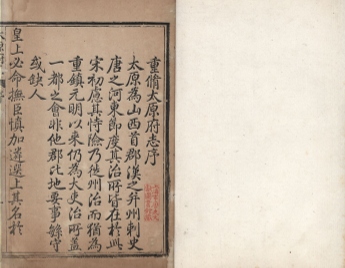 重脩太原府志序
太原為山西首郡漢之并州刺史
唐之河東節度其治所皆在於此
宋初慮其恃險乃徙州治而猶為
重鎮元明以来仍為大吏治所蓋
一都之會非他郡比地要事繇守
或缺人
皇上必命撫臣慎加遴選上其名於